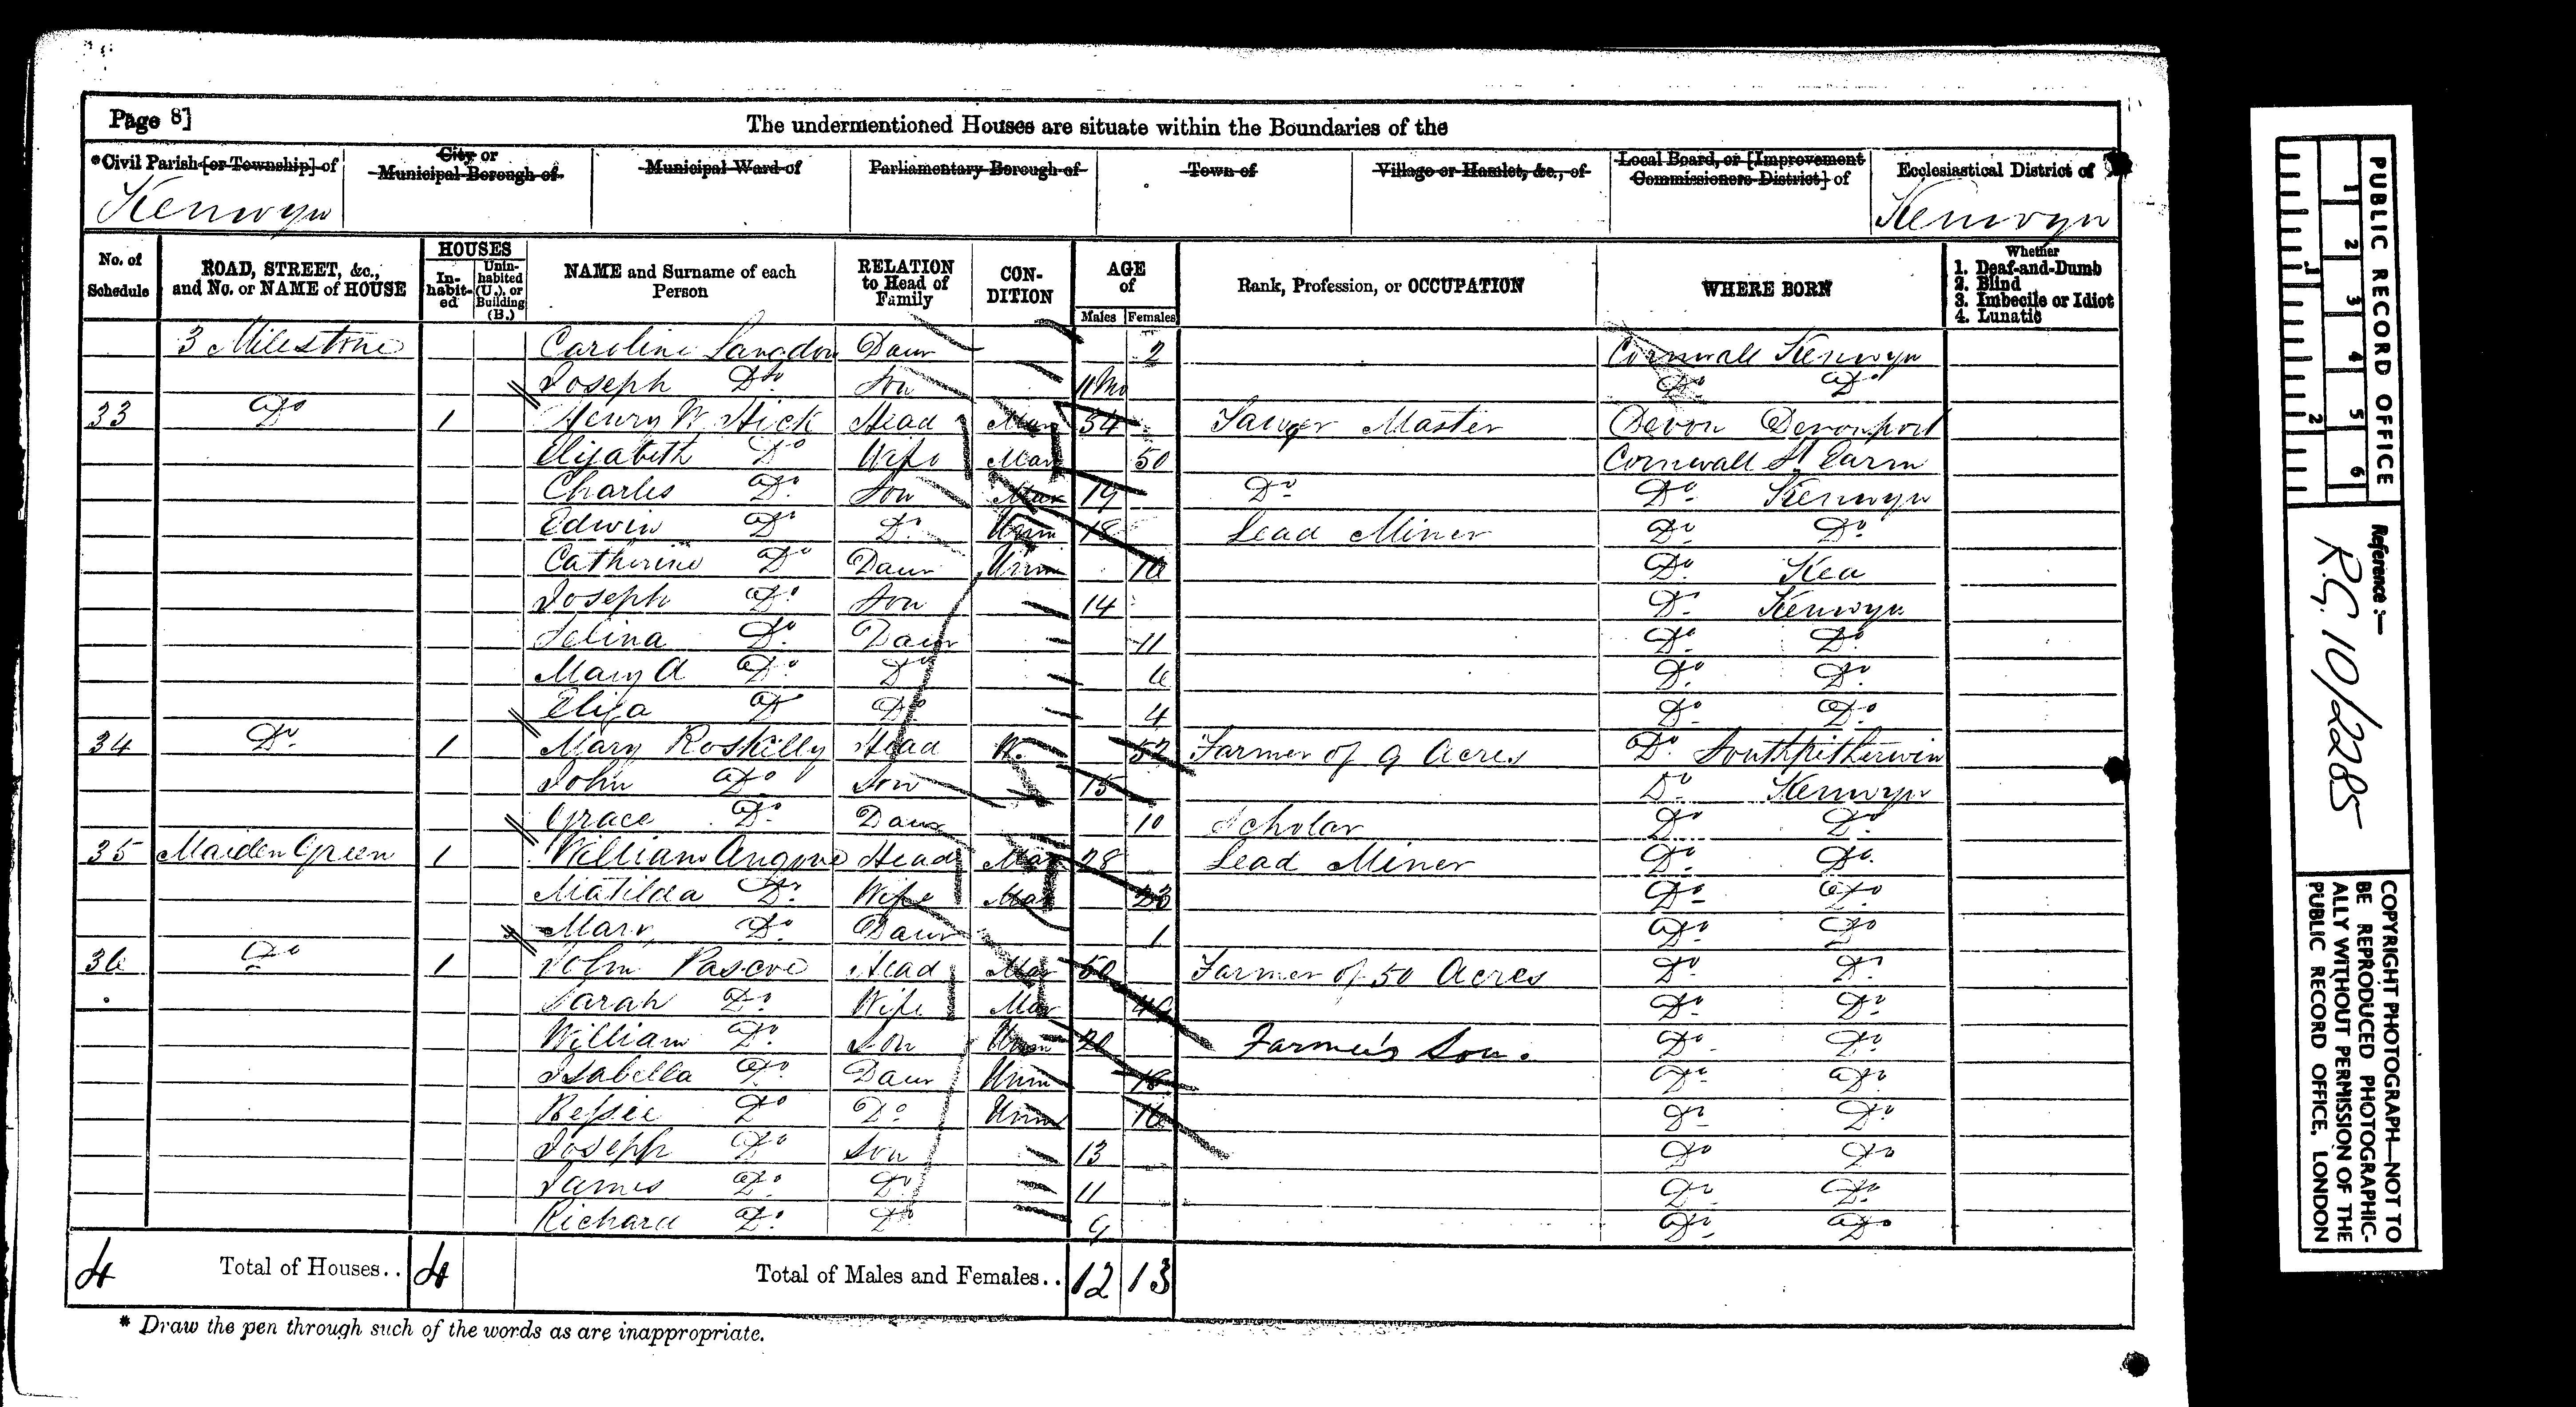 Page 8]
The undermentioned Houses are situate within the Boundaries of the
*Civil Parish [or Township] of
City or Municipal Borough of
Municipal Ward of
Parliamentary Borough of
Town of
Village or Hamlet, &c., of
Local Board, or [Improvement Commissioners District] of
Ecclesiastical District of
Kenwyn Kenwyn
No. of Schedule
ROAD, STREET, &c., and No. or NAME of HOUSE
HOUSES
In-habit-ed
Unin-habited (U.), or Building (B.)
NAME and Surname of each Person
RELATION to Head of Family
CON-DITION
AGE of
Males Females
Rank, Profession, or OCCUPATION
WHERE BORN
Whether
1. Deaf-and-Dumb
2. Blind
3. Imbecile or Idiot
4. Lunatic
3 Milestone Caroline Langdon Daur 2 Cornwall Kenwyn
Joseph Do Son 11 Mo Do Do
33 Do 1 Henry W Hick Head Mar 54 Sawyer Master Devon Devonport
Elizabeth Do Wife Mar 50 Cornwall St Earm
Charles Do Son 19 Do Do Kenwyn
Edwin Do Do Unm 18 Lead Miner Do Do
Catherine Do Daur Unm 16 Do Kea
Joseph Do Son 14 Do Kenwyn
Selina Do Daur 11 Do Do
Mary A Do Do 6 Do Do
Eliza Do Do 4 Do Do
34 Do 1 Mary Roskilly Head W. 52 Farmer of 9 Acres Do Southpitherwin
John Do Son 15 Do Kenwyn
Grace Do Daur 10 Scholar Do Do
35 Maiden Green 1 William Angove Head Mar 28 Lead Miner Do Do
Matilda Do Wife Mar 23 Do Do
Mary Do Daur 1 Do Do
36 Do 1 John Pascoe Head Mar 50 Farmer of 50 Acres Do Do
Sarah Do Wife Mar Do Do
William Do Son Unm 20 Farmer's Son. Do Do
Isabella Do Daur Unm 18 Do Do
Bessie Do Do Unm 16 Do Do
Joseph Do Son 13 Do Do
James Do Do 11 Do Do
Richard Do Do 9 Do Do
4 Total of Houses.. 4 Total of Males and Females.. 12 13
* Draw the pen through such of the words as are inappropriate.
PUBLIC RECORD OFFICE
1 2 3 4 5 6
1 2
Reference :—
R.G. 10/2285
COPYRIGHT PHOTOGRAPH—NOT TO
BE REPRODUCED PHOTOGRAPHIC-
ALLY WITHOUT PERMISSION OF THE
PUBLIC RECORD OFFICE, LONDON